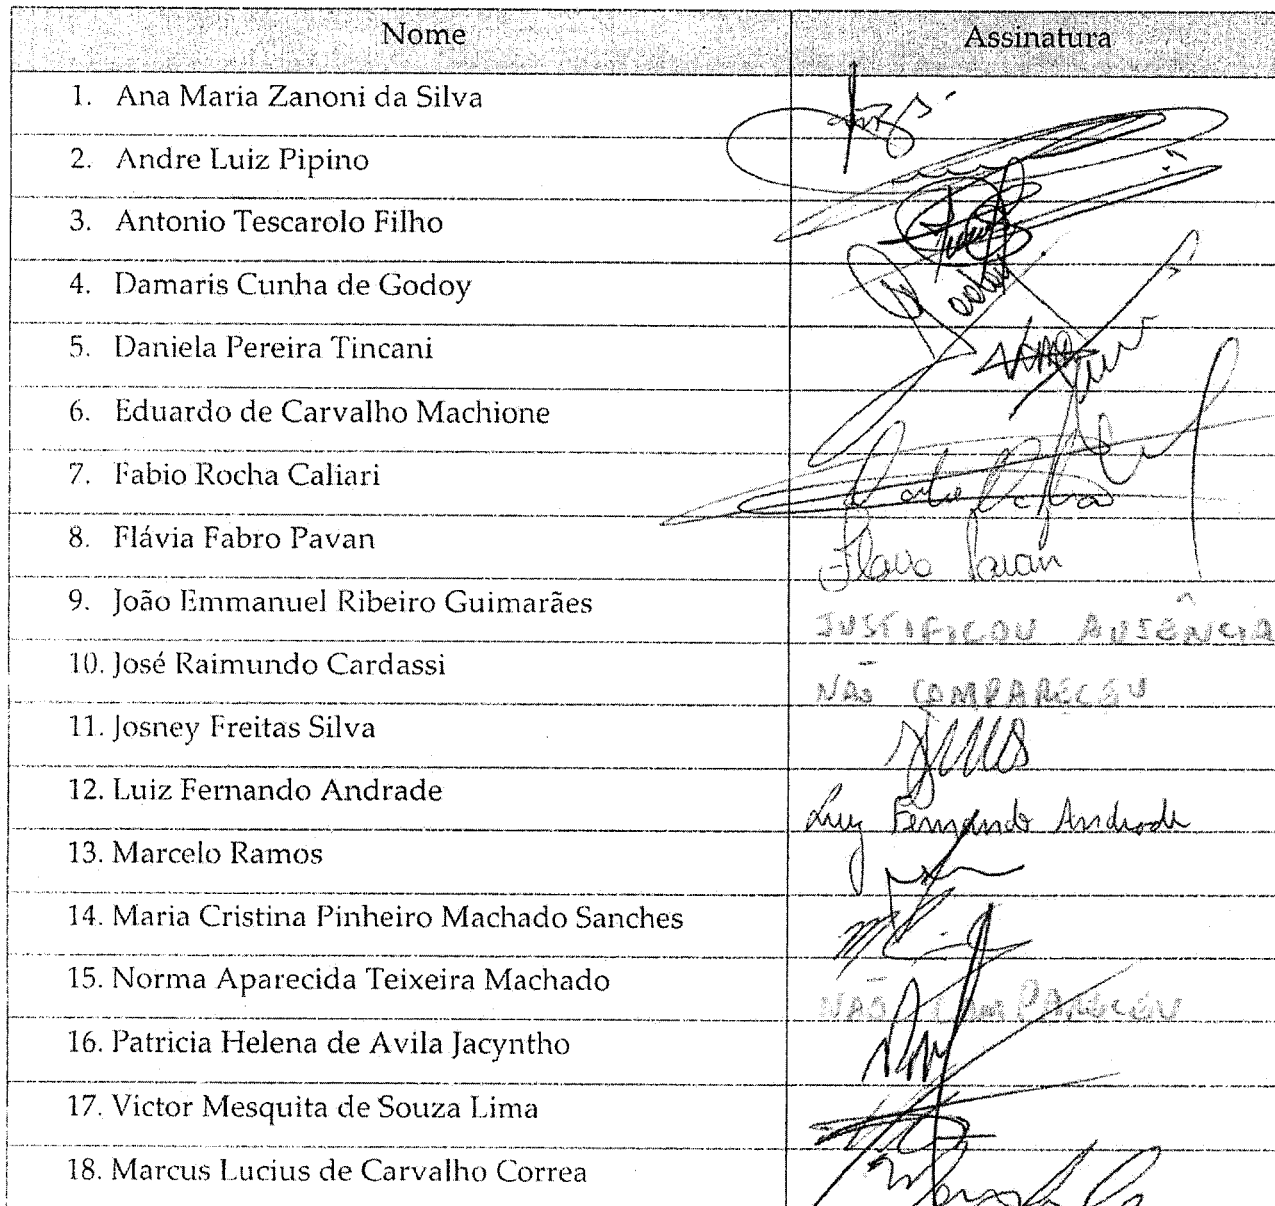 Nome Assinatura
1. Ana Maria Zanoni da Silva
2. Andre Luiz Pipino
3. Antonio Tescarolo Filho
4. Damaris Cunha de Godoy
5. Daniela Pereira Tincani
6. Eduardo de Carvalho Machione
7. Fabio Rocha Caliari
8. Flávia Fabro Pavan Flavia Pavan
9. João Emmanuel Ribeiro Guimarães JUSTIFICOU AUSÊNCIA
10. José Raimundo Cardassi NÃO COMPARECEU
11. Josney Freitas Silva
12. Luiz Fernando Andrade Luiz Fernando Andrade
13. Marcelo Ramos
14. Maria Cristina Pinheiro Machado Sanches
15. Norma Aparecida Teixeira Machado NÃO COMPARECEU
16. Patricia Helena de Avila Jacyntho
17. Victor Mesquita de Souza Lima
18. Marcus Lucius de Carvalho Correa